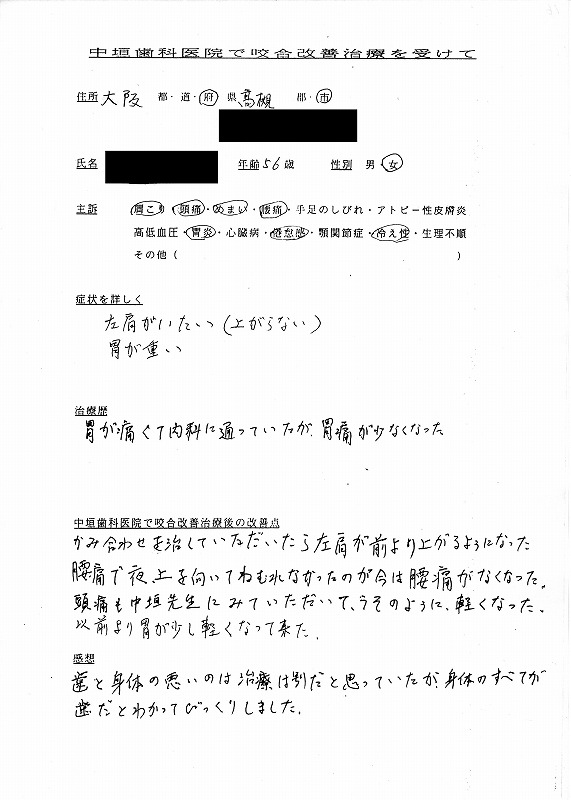 中垣歯科医院で咬合改善治療を受けて
住所 大阪 都・道・府 県 高槻 郡・市
氏名 年齢 56 歳 性別 男・女
主訴 肩こり・頭痛・めまい・腰痛・手足のしびれ・アトピー性皮膚炎
高低血圧・胃炎・心臓病・倦怠感・顎関節症・冷え性・生理不順
その他( )
症状を詳しく
左肩がいたい(上がらない)
胃が重い
治療歴
胃が痛くて内科に通っていたが、胃痛が少なくなった
中垣歯科医院で咬合改善治療後の改善点
かみ合わせを治していただいたら左肩が前より上がるようになった
腰痛で夜上を向いてねむれなかったのが今は腰痛がなくなった。
頭痛も中垣先生にみていただいて、うそのように、軽くなった、
以前より胃が少し軽くなって来た.
感想
歯と身体の悪いのは治療は別だと思っていたが、身体のすべてが
歯だとわかってびっくりしました.